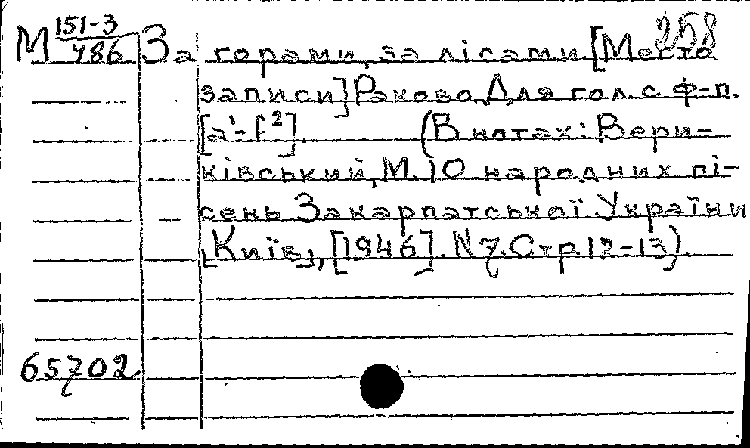 258
М 151-3/486 За горами, за лісами [Место
записи] Раково. Для гол. с ф-п.
[a¹-f²]. (В нотах: Вери-
ківський, М. 10 народних пі-
сень Закарпатської України
[Київ], [1946]. N 7. Стр. 12-13).
65702